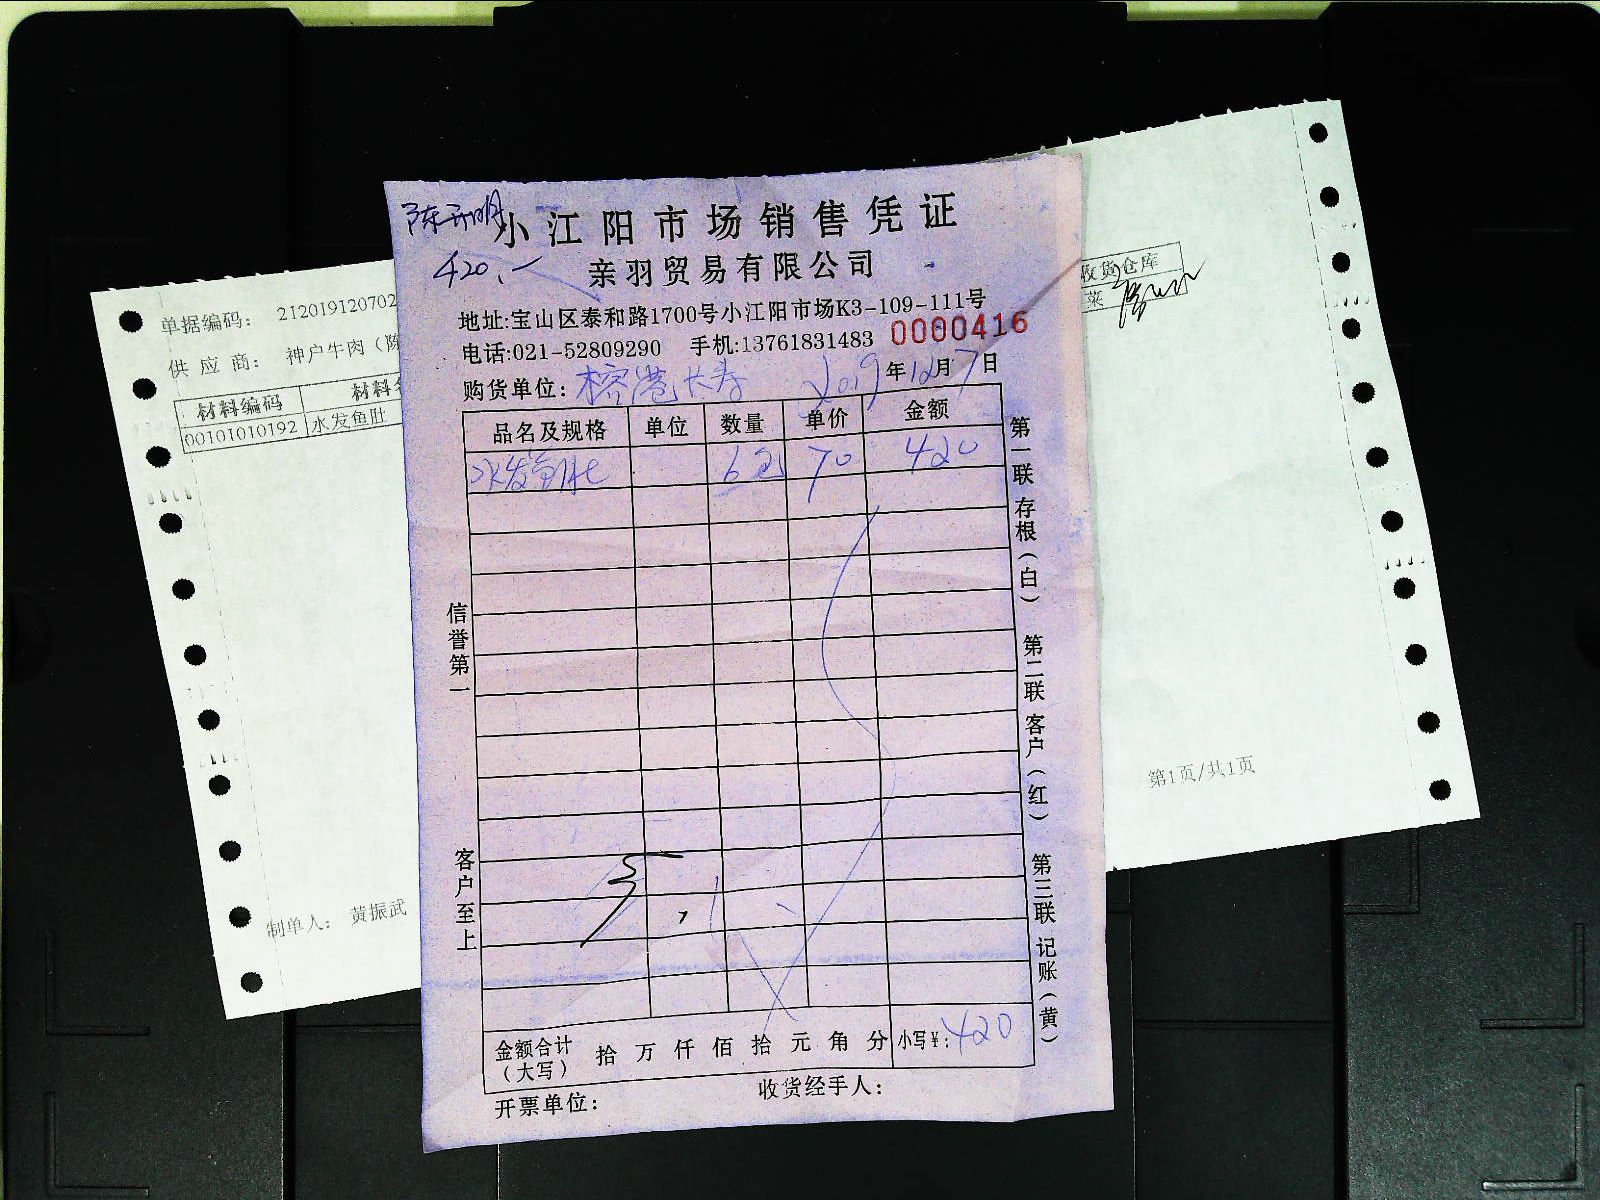 陈开明
小江阳市场销售凭证
420.—
亲羽贸易有限公司
地址:宝山区泰和路1700号小江阳市场K3-109-111号
电话:021-52809290 手机:13761831483 0000416
购货单位: 榕港长寿 2019年12月7日
品名及规格 单位 数量 单价 金额
水发鱼肚 6包 70 420
信誉第一
客户至上
第一联 存根（白） 第二联 客户（红） 第三联 记账（黄）
金额合计（大写） 拾 万 仟 佰 拾 元 角 分 小写¥: 420
开票单位: 收货经手人:
单据编码: 212019120702
供应商: 神户牛肉（陈
材料编码 材料名
00101010192 水发鱼肚
收货仓库
菜
第1页/共1页
制单人: 黄振武